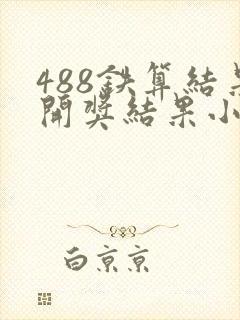 488鉄算結果
開奖結果小
白京京